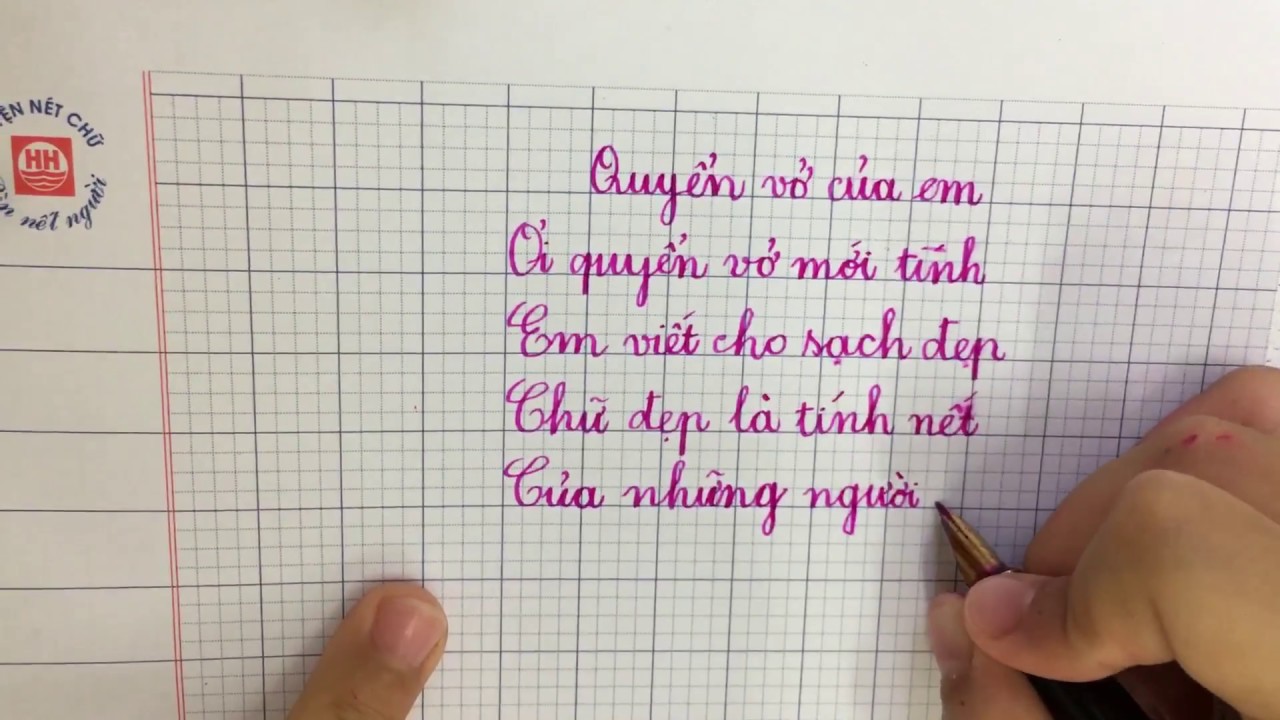 ỆN NÉT CHỮ
HH
nết người
Quyển vở của em
Ơi quyển vở mới tinh
Em viết cho sạch đẹp
Chữ đẹp là tính nết
Của những người